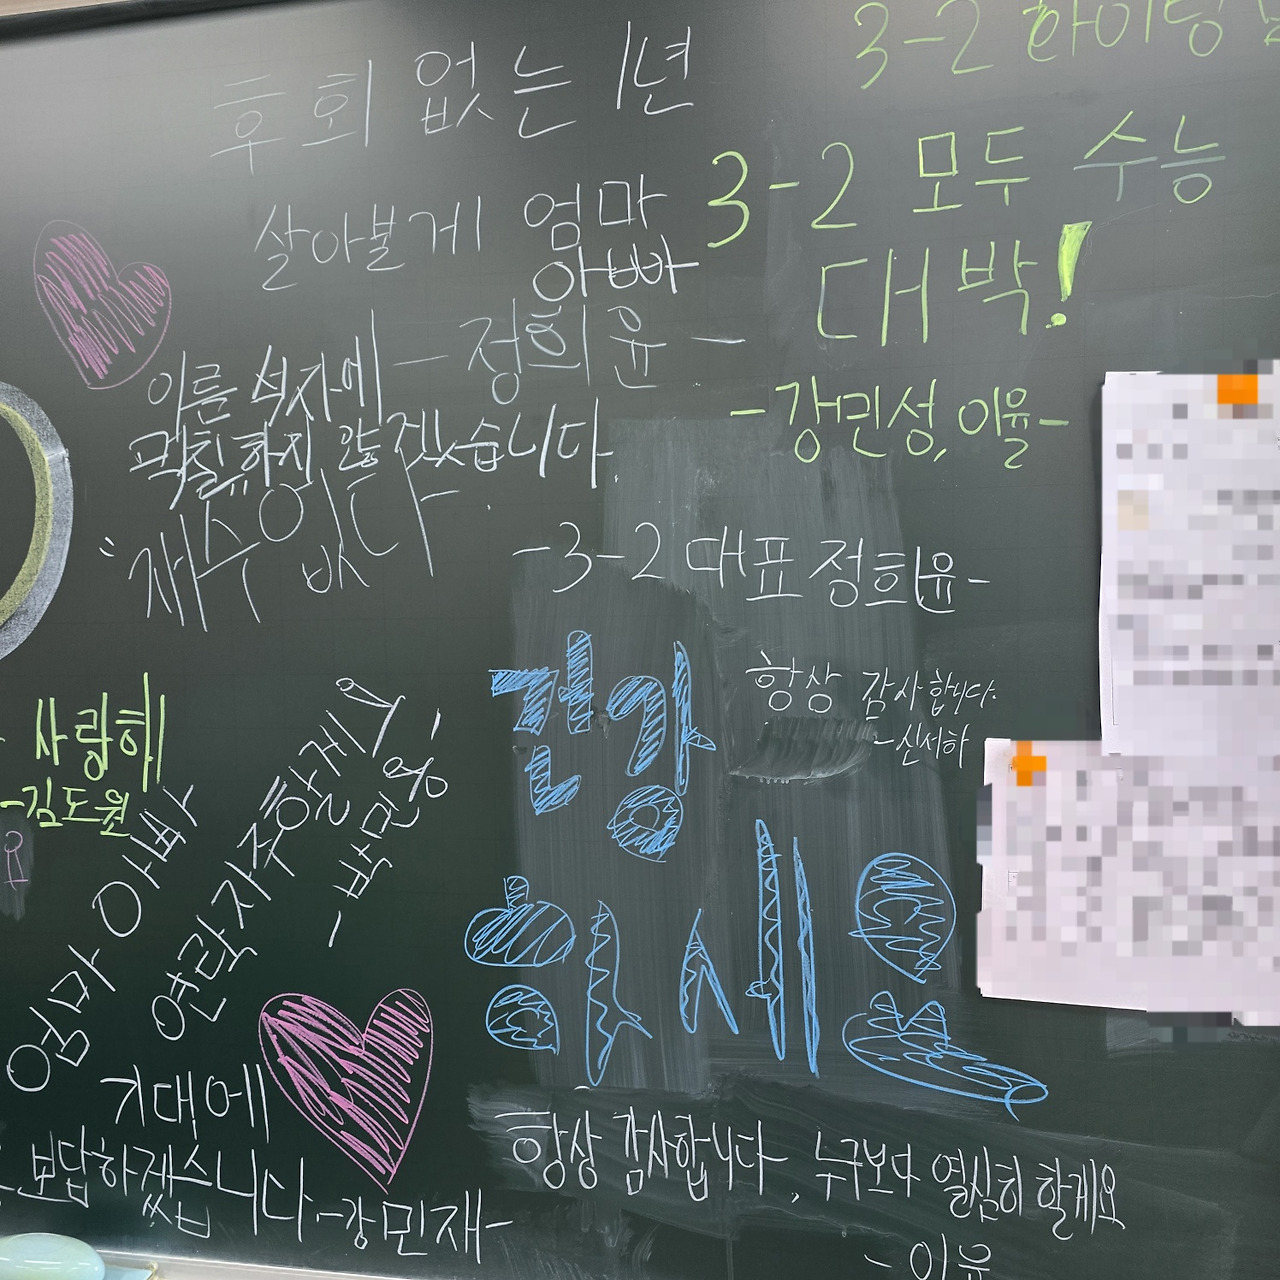 3-2 화이팅
후회 없는 1년
살아볼게 엄마
아빠
- 정희윤 -
3-2 모두 수능
대박!
-강민성, 이율-
이름 석자에
먹칠하지 않겠습니다.
"재수없다"
-3-2 대표 정희윤-
건강
하세요
항상 감사합니다.
-신서하
사랑해
-김도원
요
엄마 아빠
연락자주할게요
-박민용
기대에
보답하겠습니다.
-강민재-
항상 감사합니다, 누구보다 열심히 할게요
- 이율